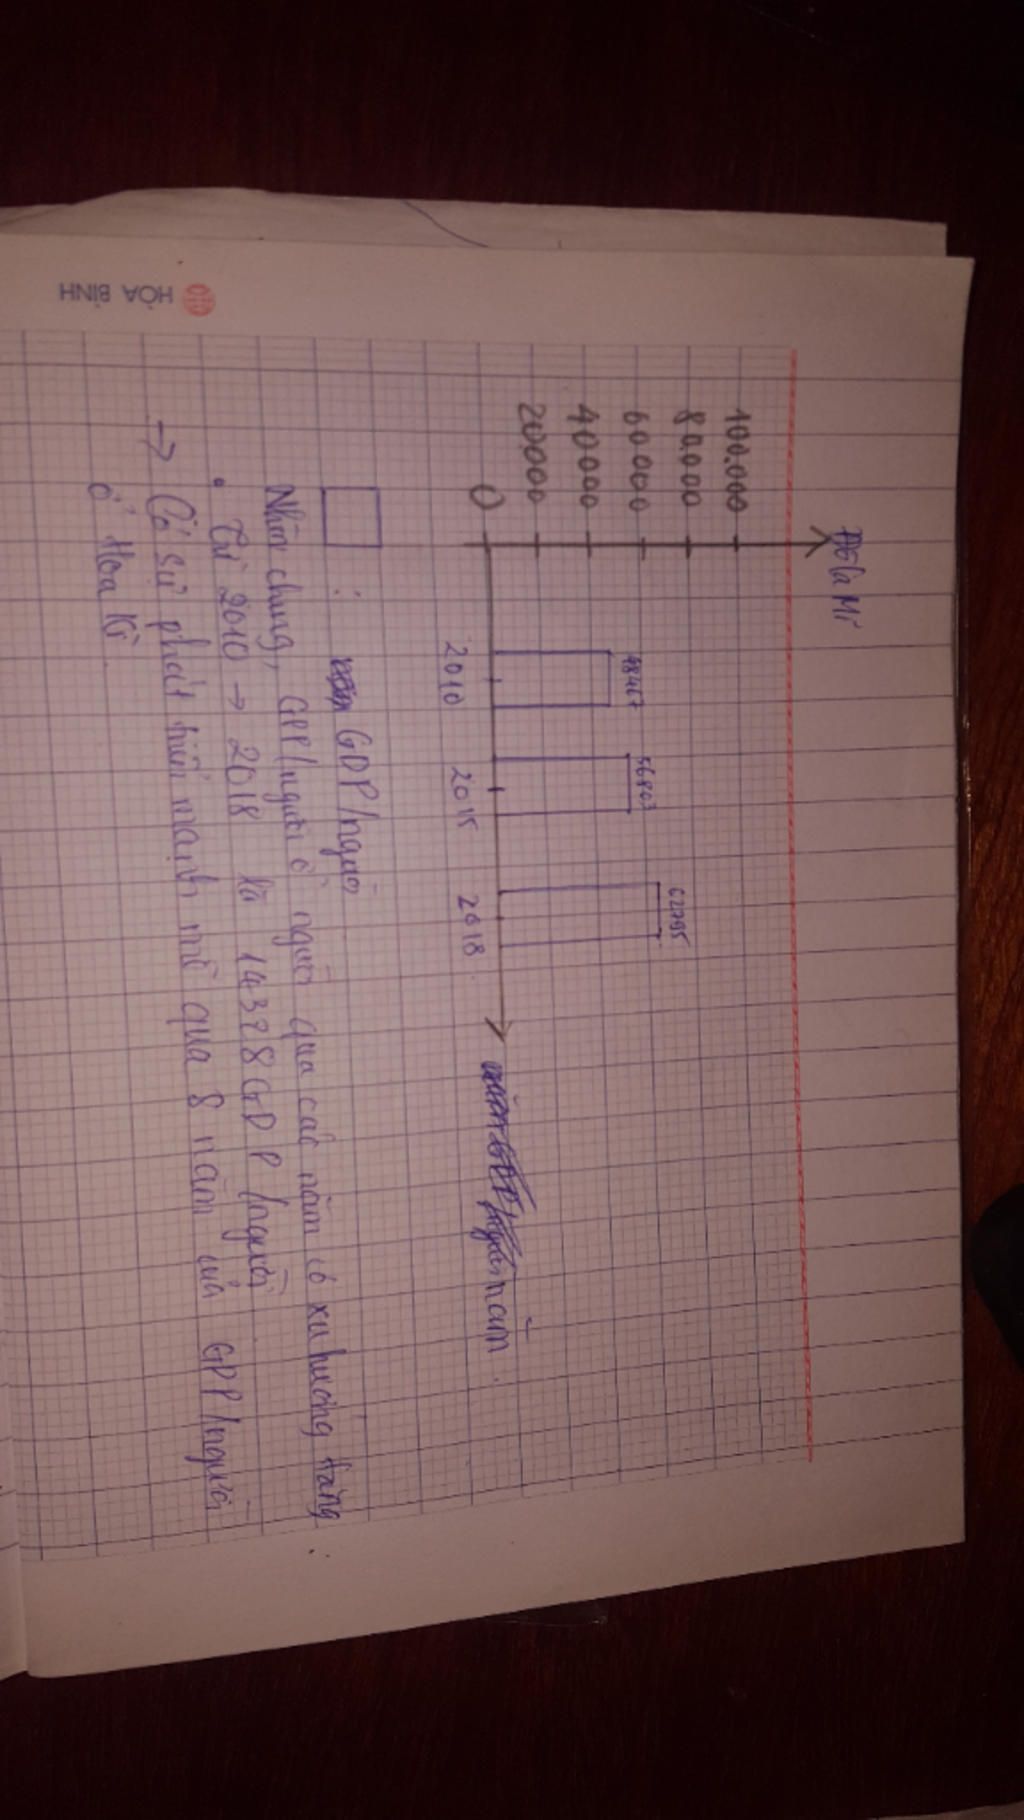 HÒA BÌNH
Đôla Mĩ
100.000
80.000
60.000
40000
20000
0
48467
56803
62795
2010
2015
2018
năm
: GDP/người
Nhìn chung, GPP/người ở người qua các năm có xu hướng tăng
• Từ 2010 → 2018 là 14328 GDP/người
→ Có sự phát triển mạnh mẽ qua 8 năm của GPP/người
ở Hoa Kì